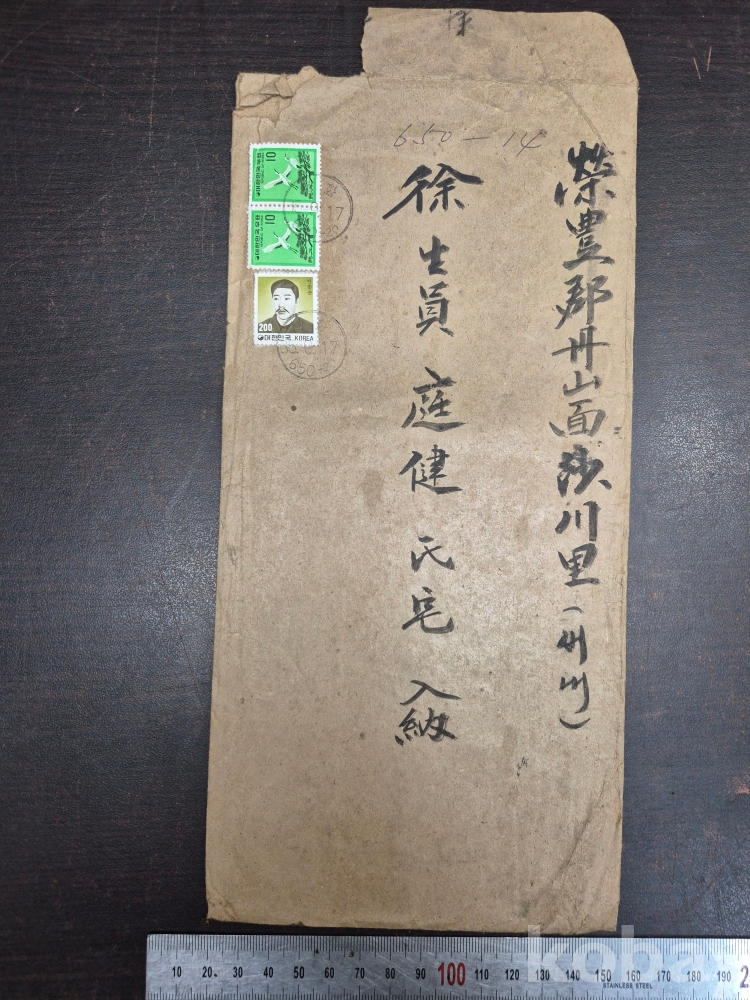 650-14
榮豊郡丹山面沙川里(새내)
徐生員 庭健 氏宅 入納
10
10
200
대한민국 KOREA
17
17
650
10 20 30 40 50 60 70 80 90 100 110 120 130 140 150 160 170 180 190 2
STAINLESS STEEL
koba